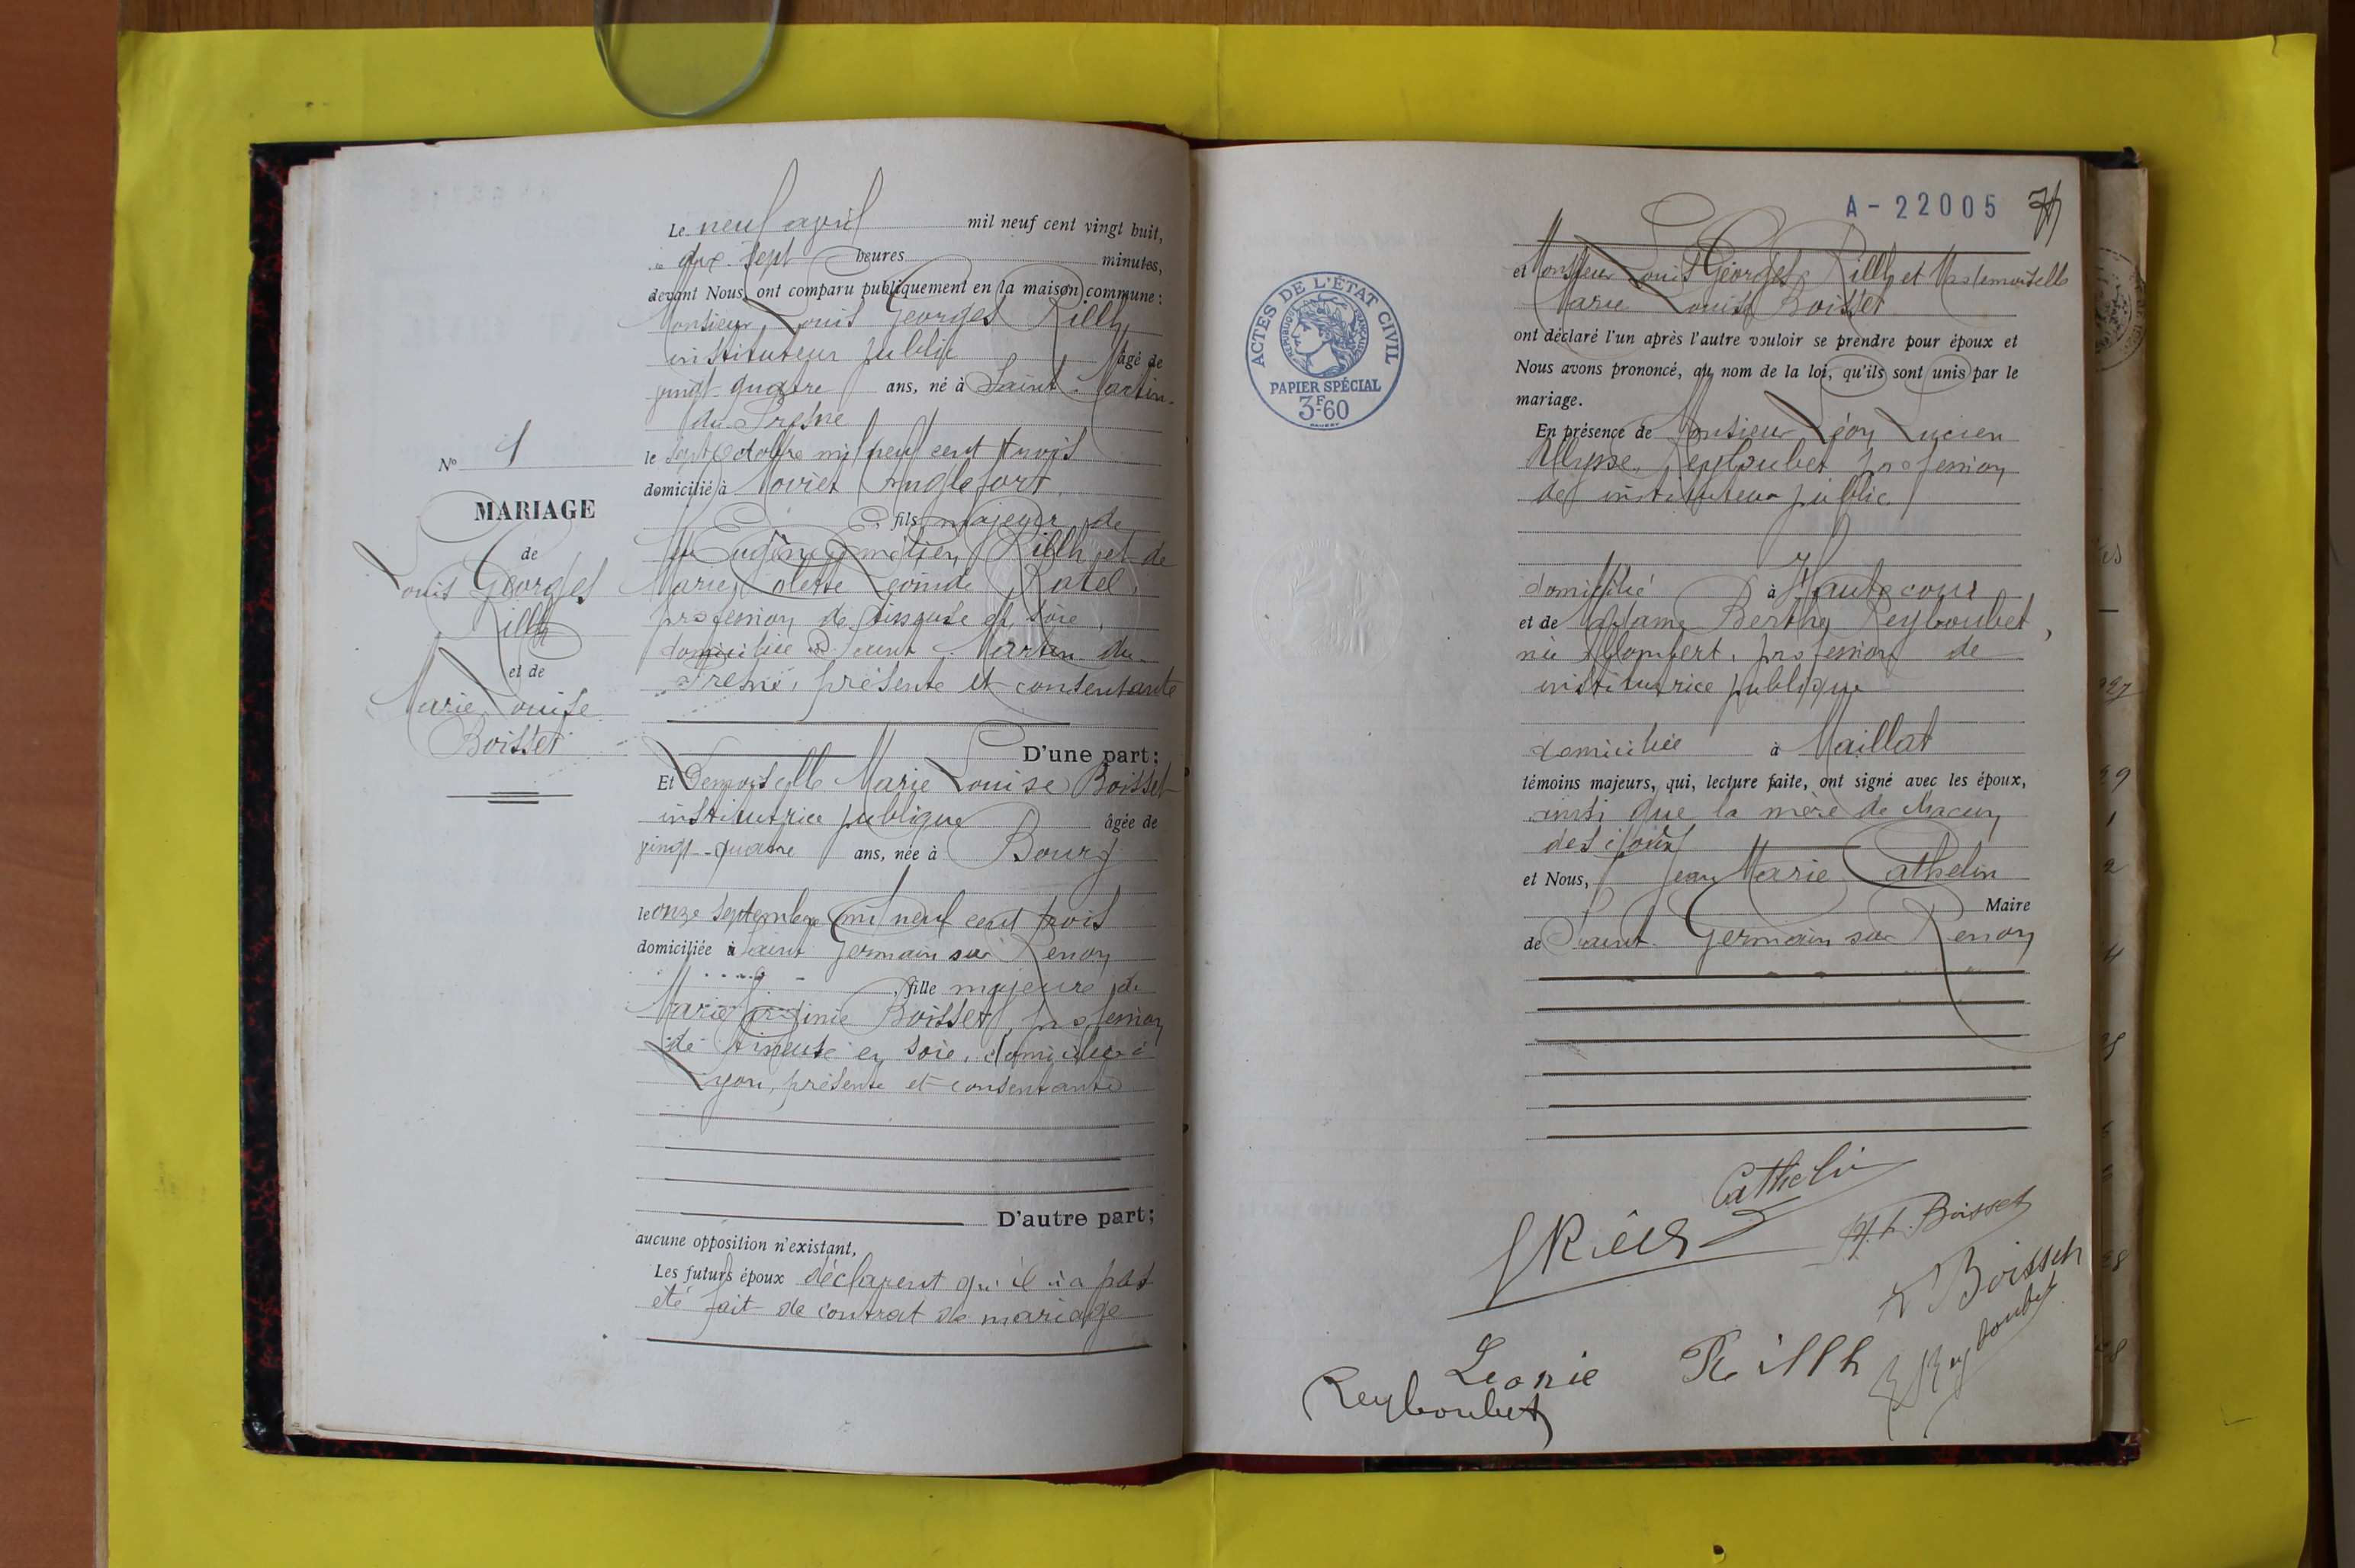 Le neuf avril mil neuf cent vingt huit,
dix-sept heures minutes,
devant Nous, ont comparu publiquement en la maison commune :
Monsieur Louis Georges Rilh,
instituteur public âgé de
vingt-quatre ans, né à Saint-Martin-
du-Fresne
le sept Octobre mil neuf cent trois
domicilié à Anglefort
fils majeur de
Rilh et de
Marie Ratel,
profession de en soie,
domiciliée à Saint Martin du
Fresne, présente et consentante
D'une part;
Et Demoiselle Marie Louise Boisset
institutrice publique âgée de
vingt-quatre ans, née à Bourg
le onze septembre mil neuf cent trois
domiciliée à Saint Germain sur Renon
fille majeure de
Marie Boisset, profession
de en soie, domiciliée à
Lyon, présente et consentante
D'autre part;
aucune opposition n'existant,
Les futurs époux déclarent qu'il n'a pas
été fait de contrat de mariage
No
MARIAGE
de
Louis Georges
Rilh
et de
Marie Louise
Boisset
A-22005
ACTES DE L'ÉTAT CIVIL
RÉPUBLIQUE FRANÇAISE
PAPIER SPÉCIAL
3F60
et Monsieur Louis Georges Rilh et Mademoiselle
Marie Louise Boisset
ont déclaré l'un après l'autre vouloir se prendre pour époux et
Nous avons prononcé, au nom de la loi, qu'ils sont unis par le
mariage.
En présence de Monsieur Léon Lucien
Ulysse Reyboubet profession
de instituteur public
domicilié à Hautecour
et de Madame Berthe Reyboubet,
née profession de
institutrice publique
domiciliée à Maillat
témoins majeurs, qui, lecture faite, ont signé avec les époux,
ainsi que la mère de chacun
des époux
et Nous, Jean Marie Cathelin
Maire
de Saint Germain sur Renon
Cathelin
Rilh
M. L. Boisset
Boisset
Leonie Rilh
Reyboubet
Reyboubet